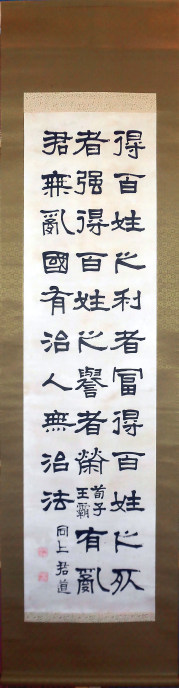 得百姓之利者冨得百姓之死
者强得百姓之譽者榮荀子王霸有亂
君無亂國有治人無治法同上君道